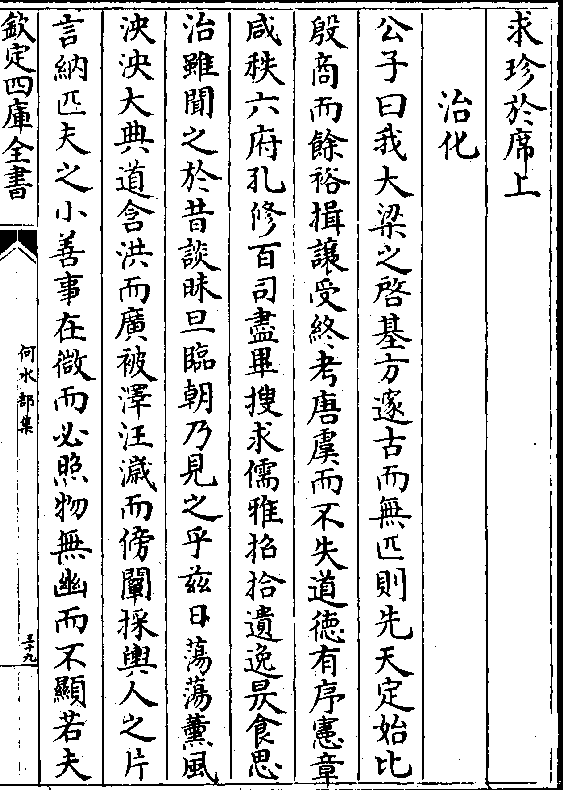 求珍於席上
治化
公子曰我大梁之啓基方邃古而無匹則先天定始比
殷商而餘裕揖讓受終考唐虞而不失道徳有序憲章
咸秩六府孔修百司盡畢搜求儒雅招拾遺逸昃食思
治雖聞之於昔談昧旦臨朝乃見之乎兹日蕩蕩薰風
泱泱大典道含洪而廣被澤汪濊而傍闡採輿人之片
言納匹夫之小善事在微而必照物無幽而不顯若夫
欽定四庫全書
何水部集
三十九